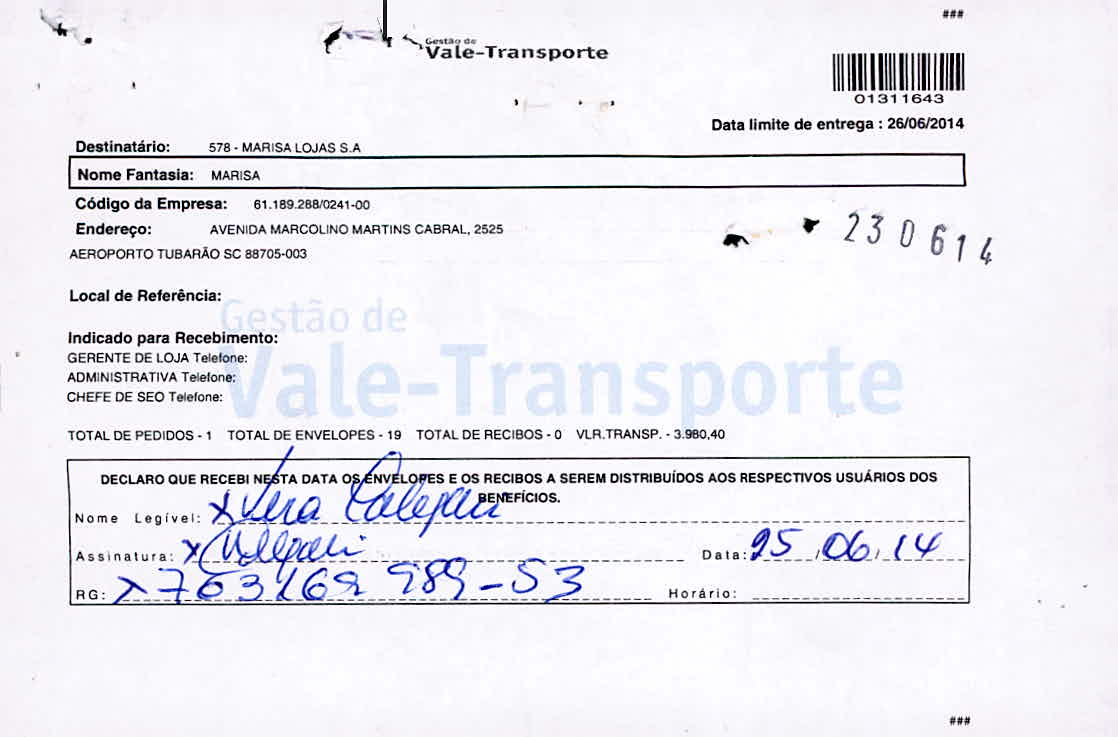 ###
Gestão de
Vale-Transporte
01311643
Data limite de entrega : 26/06/2014
Destinatário: 578 - MARISA LOJAS S.A
Nome Fantasia: MARISA
Código da Empresa: 61.189.288/0241-00
Endereço: AVENIDA MARCOLINO MARTINS CABRAL, 2525
230614
AEROPORTO TUBARÃO SC 88705-003
Local de Referência:
Gestão de
Vale-Transporte
Indicado para Recebimento:
GERENTE DE LOJA Telefone:
ADMINISTRATIVA Telefone:
CHEFE DE SEO Telefone:
TOTAL DE PEDIDOS - 1 TOTAL DE ENVELOPES - 19 TOTAL DE RECIBOS - 0 VLR.TRANSP. - 3.980,40
DECLARO QUE RECEBI NESTA DATA OS ENVELOPES E OS RECIBOS A SEREM DISTRIBUÍDOS AOS RESPECTIVOS USUÁRIOS DOS
BENEFÍCIOS.
Nome Legível: x Vera
Assinatura: x
Data: 25/06/14
RG: x 763169 989-53
Horário:
###